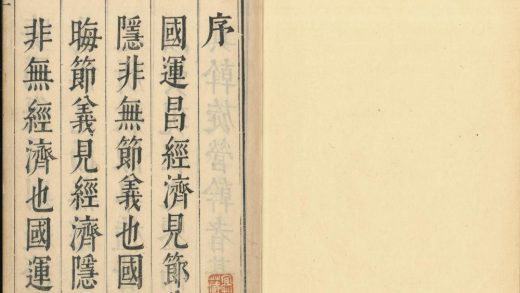 序
國運昌經濟見節
隱非無節義也國
晦節義見經濟隱
非無經濟也國運